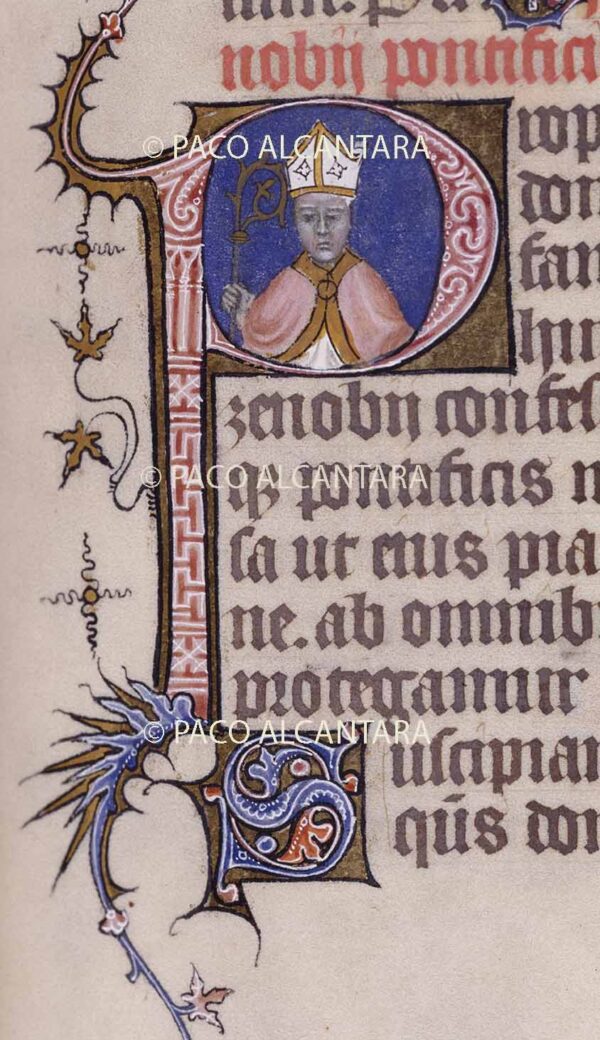 nobij pontifici
© PACO ALCANTARA
Prop
zenobij confes
© PACO ALCANTARA
qz pontificis
sa ut eius pia
ne. ab omnib
protegamur
© PACO ALCANTARA
Suscipian
qūs